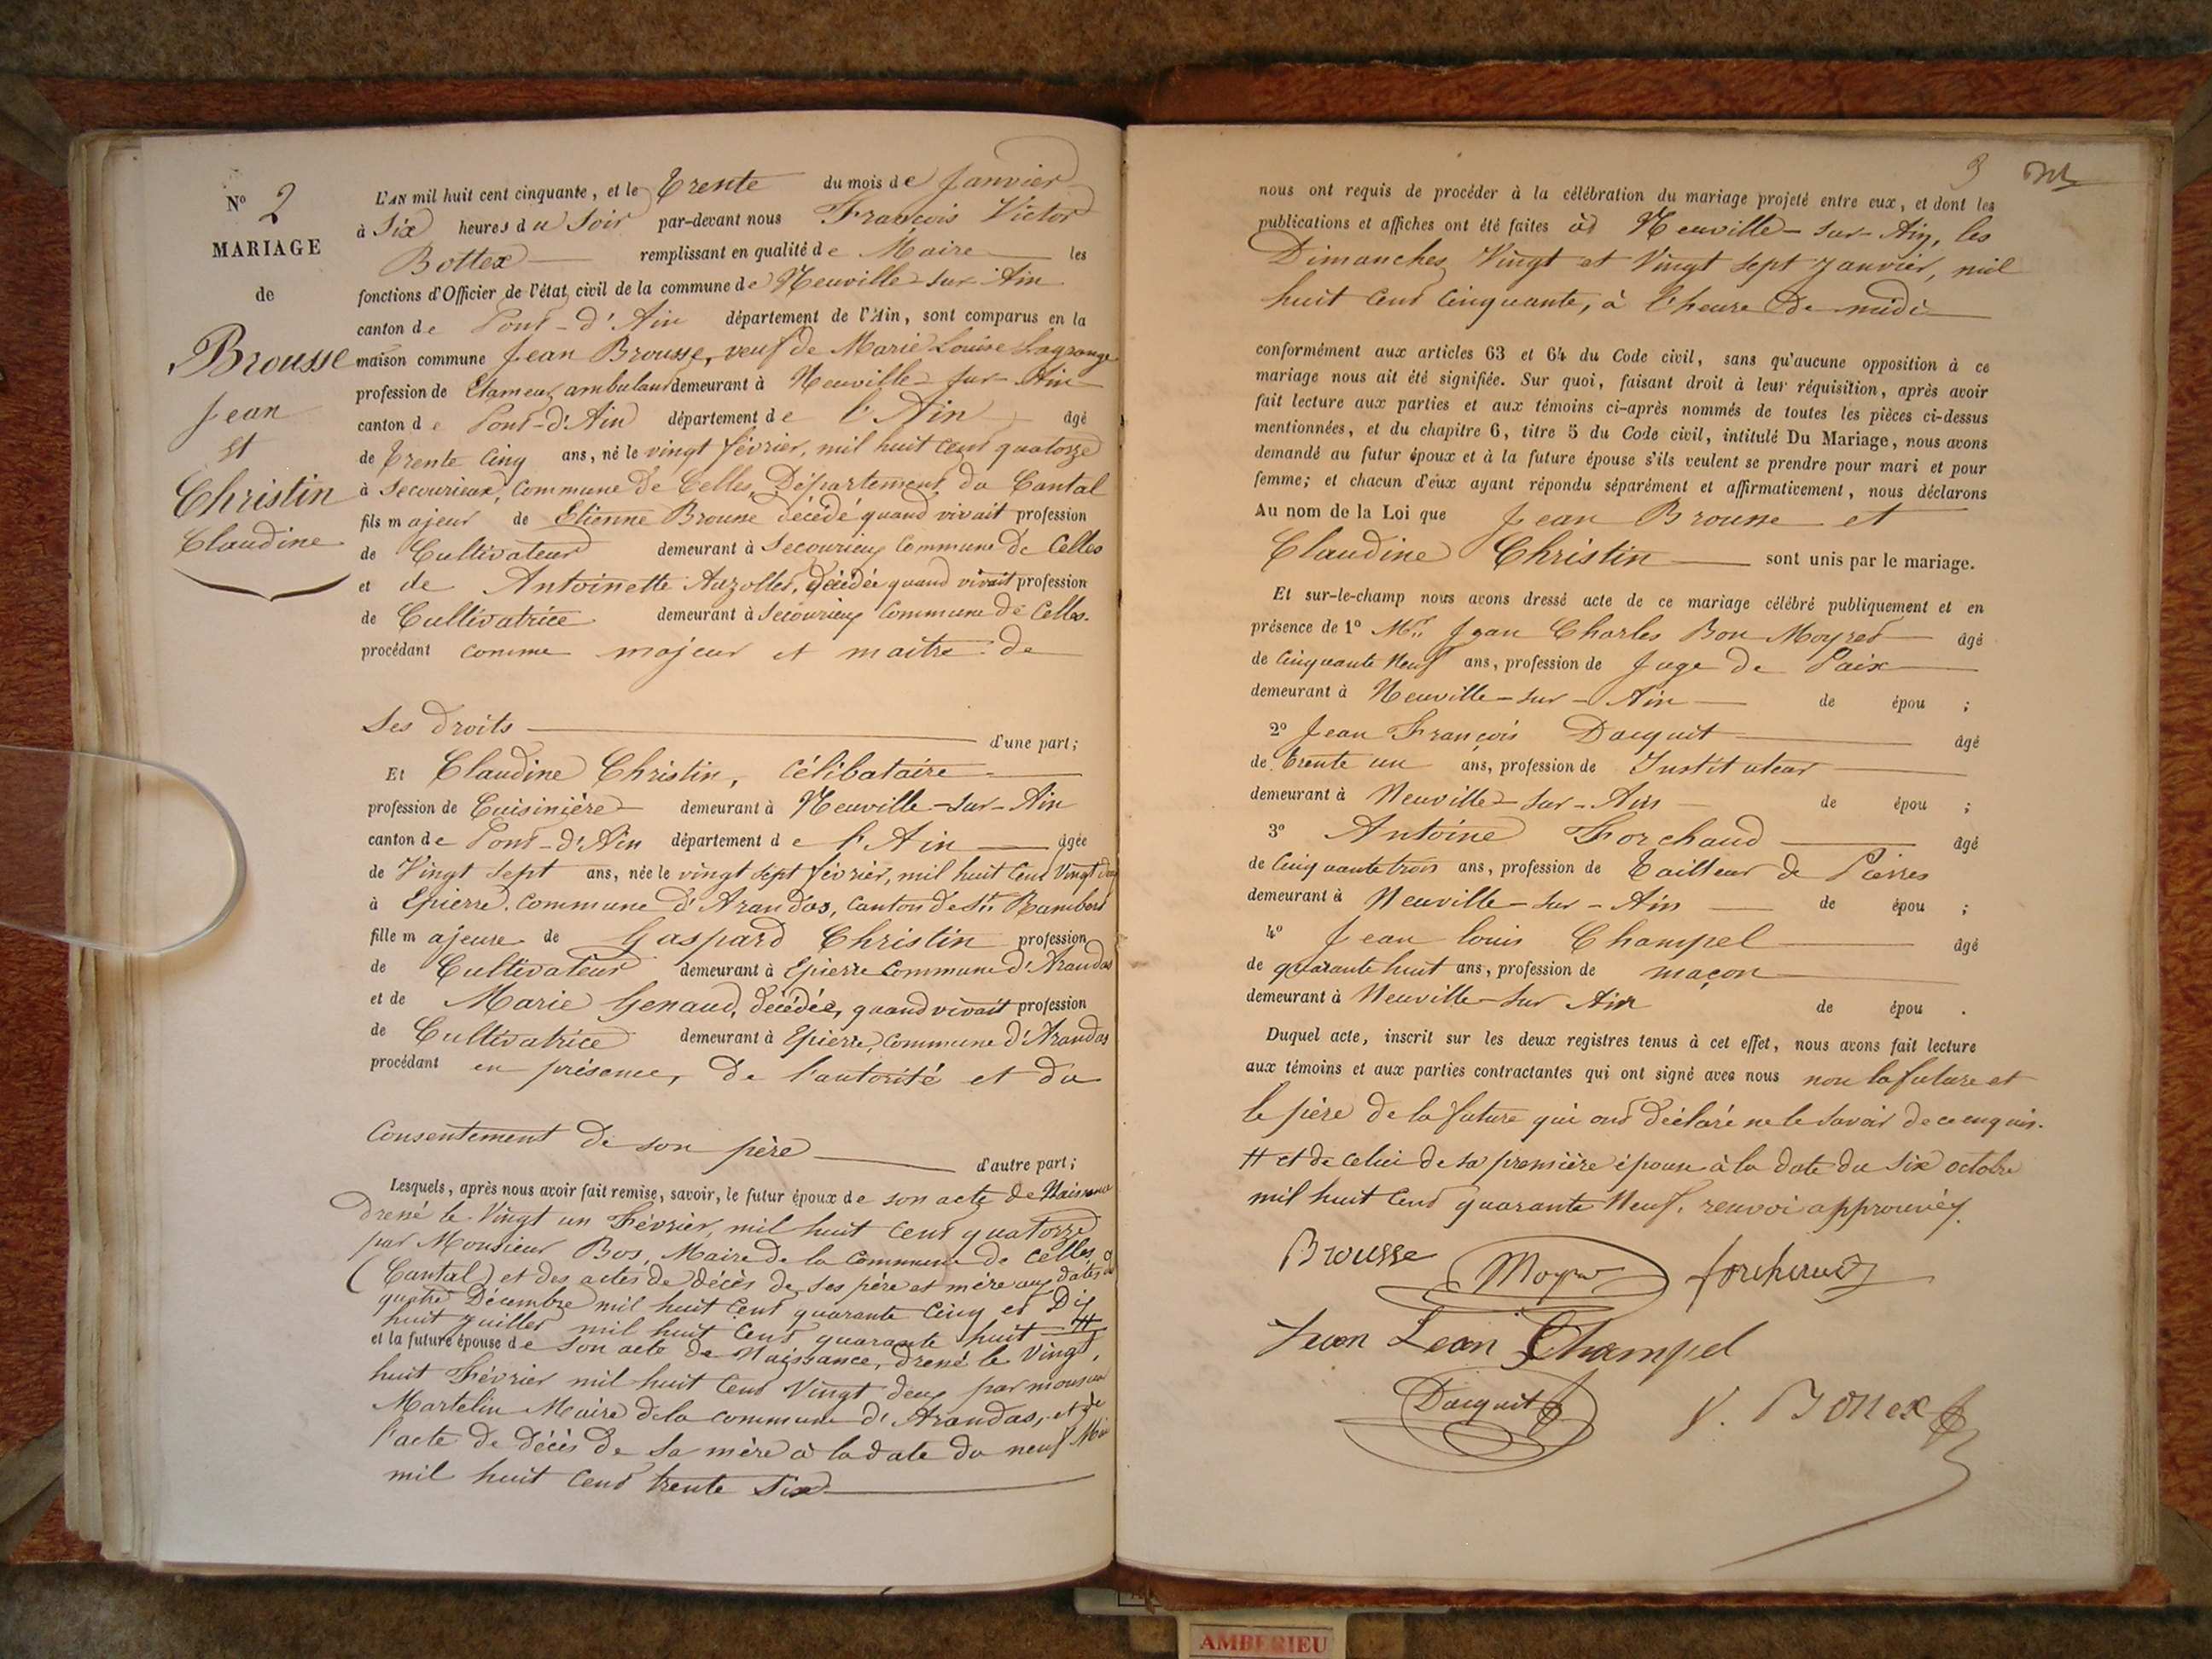 N° 2
MARIAGE
de
Brousse
Jean
et
Christin
Claudine
L'AN mil huit cent cinquante, et le Trente du mois de Janvier
à Six heures du Soir par-devant nous François Victor
Bottex remplissant en qualité de Maire les
fonctions d'Officier de l'état civil de la commune de Neuville-sur-Ain
canton de Pont-d'Ain département de l'Ain, sont comparus en la
maison commune Jean Brousse, veuf de Marie Louise Lagrange
profession de Etameur ambulant demeurant à Neuville-sur-Ain
canton de Pont-d'Ain département de l'Ain âgé
de Trente Cinq ans, né le vingt février, mil huit cent quatorze
à Secourieux, Commune de Celles, Département du Cantal
fils majeur de Etienne Brousse décédé quand vivait profession
de Cultivateur demeurant à Secourieux Commune de Celles
et de Antoinette Auzolles, décédée quand vivait profession
de Cultivatrice demeurant à Secourieux Commune de Celles.
procédant comme majeur et maître de
Ses droits d'une part;
Et Claudine Christin, célibataire
profession de Cuisinière demeurant à Neuville-sur-Ain
canton de Pont-d'Ain département de l'Ain âgée
de Vingt sept ans, née le vingt sept février, mil huit Cent Vingt deux
à Epierre, Commune d'Arandas, Canton de St Rambert
fille majeure de Gaspard Christin profession
de Cultivateur demeurant à Epierre Commune d'Arandas
et de Marie Genaud, décédée, quand vivait profession
de Cultivatrice demeurant à Epierre, Commune d'Arandas
procédant en présence, de l'autorité et du
Consentement de son père d'autre part;
Lesquels, après nous avoir fait remise, savoir, le futur époux de son acte de Naissance
dressé le Vingt un Février, mil huit Cent quatorze
par Monsieur Bos, Maire de la Commune de Celles,
(Cantal) et des actes de décès de ses père et mère aux dates du
quatre Décembre mil huit Cent quarante Cinq et Dix
huit Juillet mil huit Cent quarante huit #
et la future épouse de son acte de Naissance, dressé le Vingt
huit Février mil huit Cent Vingt deux par monsieur
Martelin Maire de la commune d'Arandas, et de
l'acte de décès de sa mère à la date du neuf Mai
mil huit Cent trente Six
3
nous ont requis de procéder à la célébration du mariage projeté entre eux, et dont les
publications et affiches ont été faites à Neuville-sur-Ain, les
Dimanches Vingt et Vingt Sept Janvier, mil
huit Cent Cinquante, à l'heure de midi
conformément aux articles 63 et 64 du Code civil, sans qu'aucune opposition à ce
mariage nous ait été signifiée. Sur quoi, faisant droit à leur réquisition, après avoir
fait lecture aux parties et aux témoins ci-après nommés de toutes les pièces ci-dessus
mentionnées, et du chapitre 6, titre 5 du Code civil, intitulé Du Mariage, nous avons
demandé au futur époux et à la future épouse s'ils veulent se prendre pour mari et pour
femme; et chacun d'eux ayant répondu séparément et affirmativement, nous déclarons
Au nom de la Loi que Jean Brousse et
Claudine Christin sont unis par le mariage.
Et sur-le-champ nous avons dressé acte de ce mariage célébré publiquement et en
présence de 1° Mr Jean Charles Bon Moyret âgé
de Cinquante Neuf ans, profession de Juge de Paix
demeurant à Neuville-sur-Ain de épou ;
2° Jean François Dacquit âgé
de Trente un ans, profession de Instituteur
demeurant à Neuville-sur-Ain de épou ;
3° Antoine Forchaud âgé
de Cinquante trois ans, profession de Tailleur de Pierres
demeurant à Neuville-sur-Ain de épou ;
4° Jean louis Champel âgé
de quarante huit ans, profession de maçon
demeurant à Neuville-sur Ain de épou .
Duquel acte, inscrit sur les deux registres tenus à cet effet, nous avons fait lecture
aux témoins et aux parties contractantes qui ont signé avec nous non la future et
le père de la future qui ont déclaré ne le savoir de ce enquis.
# et de celui de sa première épouse à la date du Six octobre
mil huit Cent quarante Neuf. renvoi approuvé
Brousse Moyret forcheraud
Jean Champel
Dacquit V. Bottex
AMBERIEU